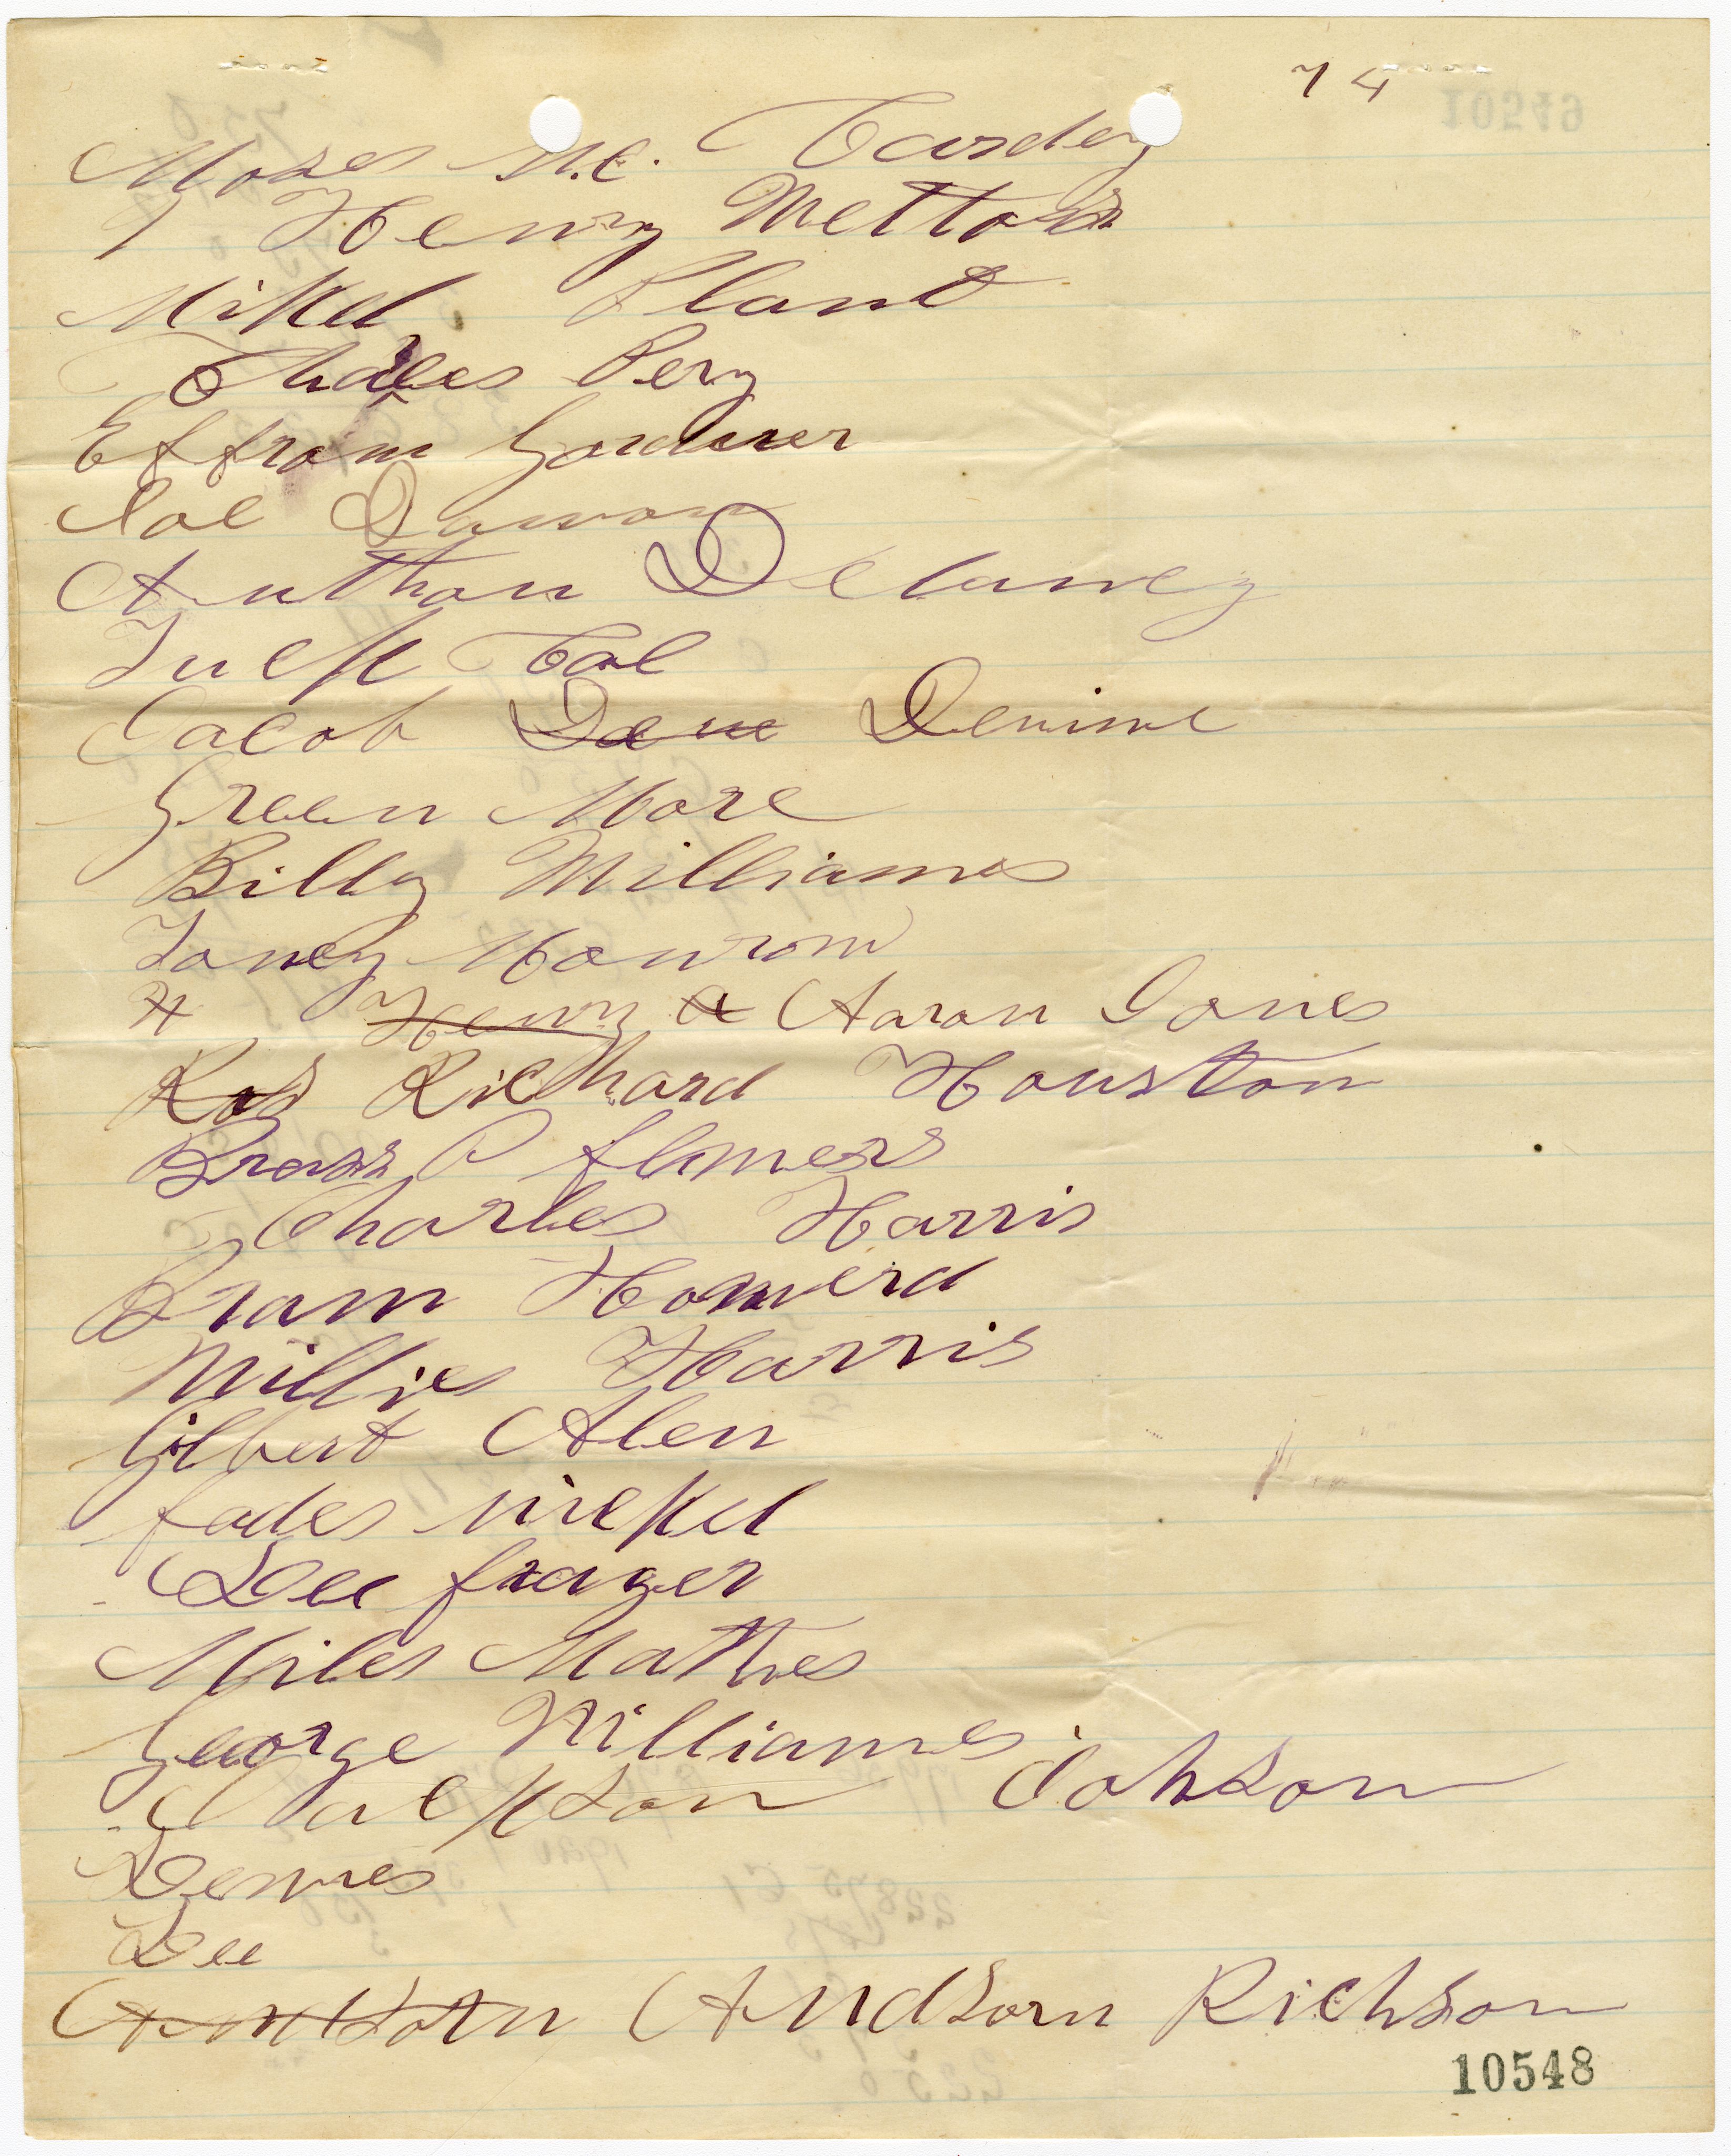 74
Moses M.C. Cardey
Henry Mettows
Mikel Plant
Charles Pery
Effram Gordner
Joe Dawson
Anthon Delaney
Juck Cole
Jacob Dem Denime
Green More
Billy Milliames
Toney Monrow
H Henry A Aaron Jones
Ros Richard Houston
Bross P flamers
Charles Harris
Bram Howerd
Millies Harris
Gilbert Alen
fades nickel
Dee frazer
Miles Mathes
George Williames
Jackson Johson
Dennes
Dee
Andson Andson Richson
10548